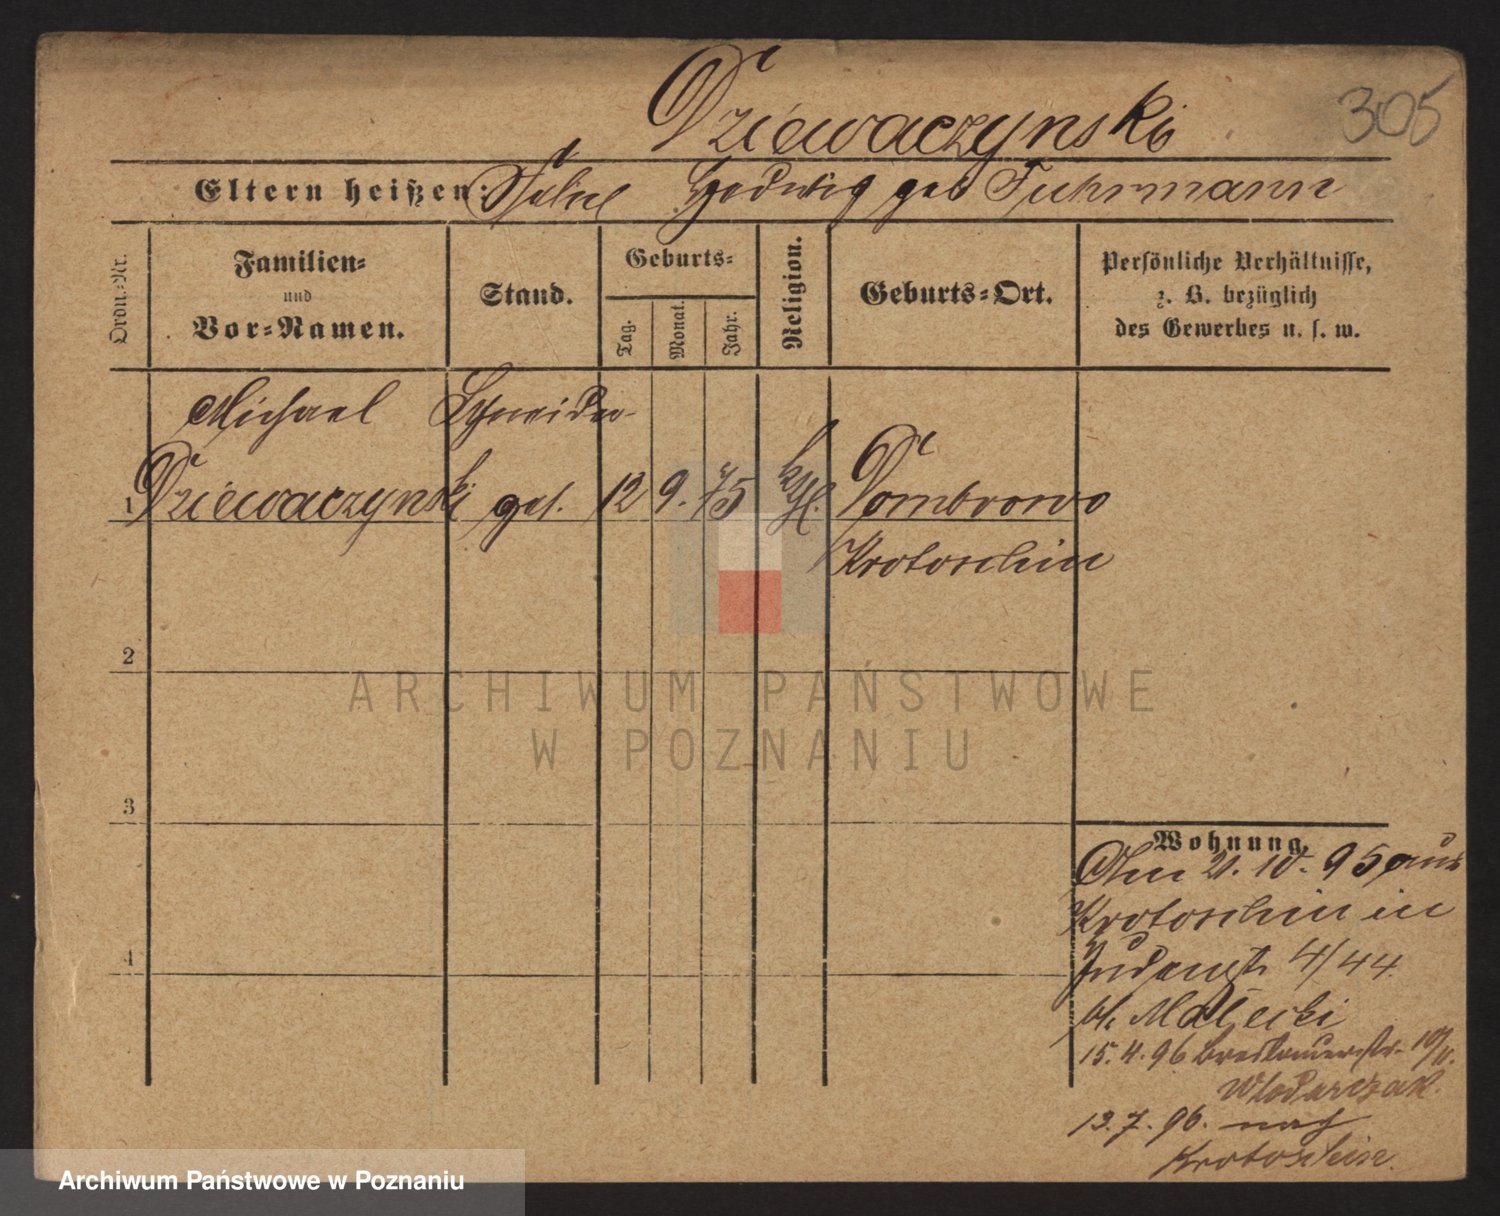 305
Dziewaczynski
Eltern heißen: Hedwig geb Fuhrmann
Ordn.-Nr.
Familien-
und
Vor-Namen.
Stand.
Geburts-
Tag.
Monat.
Jahr.
Religion.
Geburts-Ort.
Persönliche Verhältnisse,
z. B. bezüglich
des Gewerbes u. s. w.
Michael Schneider
1 Dziewaczynski ges. 12 9. 75 kth. Dombrowo
Krotoschin
2
ARCHIWUM PAŃSTWOWE
W POZNANIU
3
4
Wohnung.
10. 95 aus
Krotoschin in
Judenstr 4/44
b/. Małecki
15. 4. 96 Breslauerstr.
Wlodarczak.
13. 7. 96. nach
Krotoschin.
Archiwum Państwowe w Poznaniu